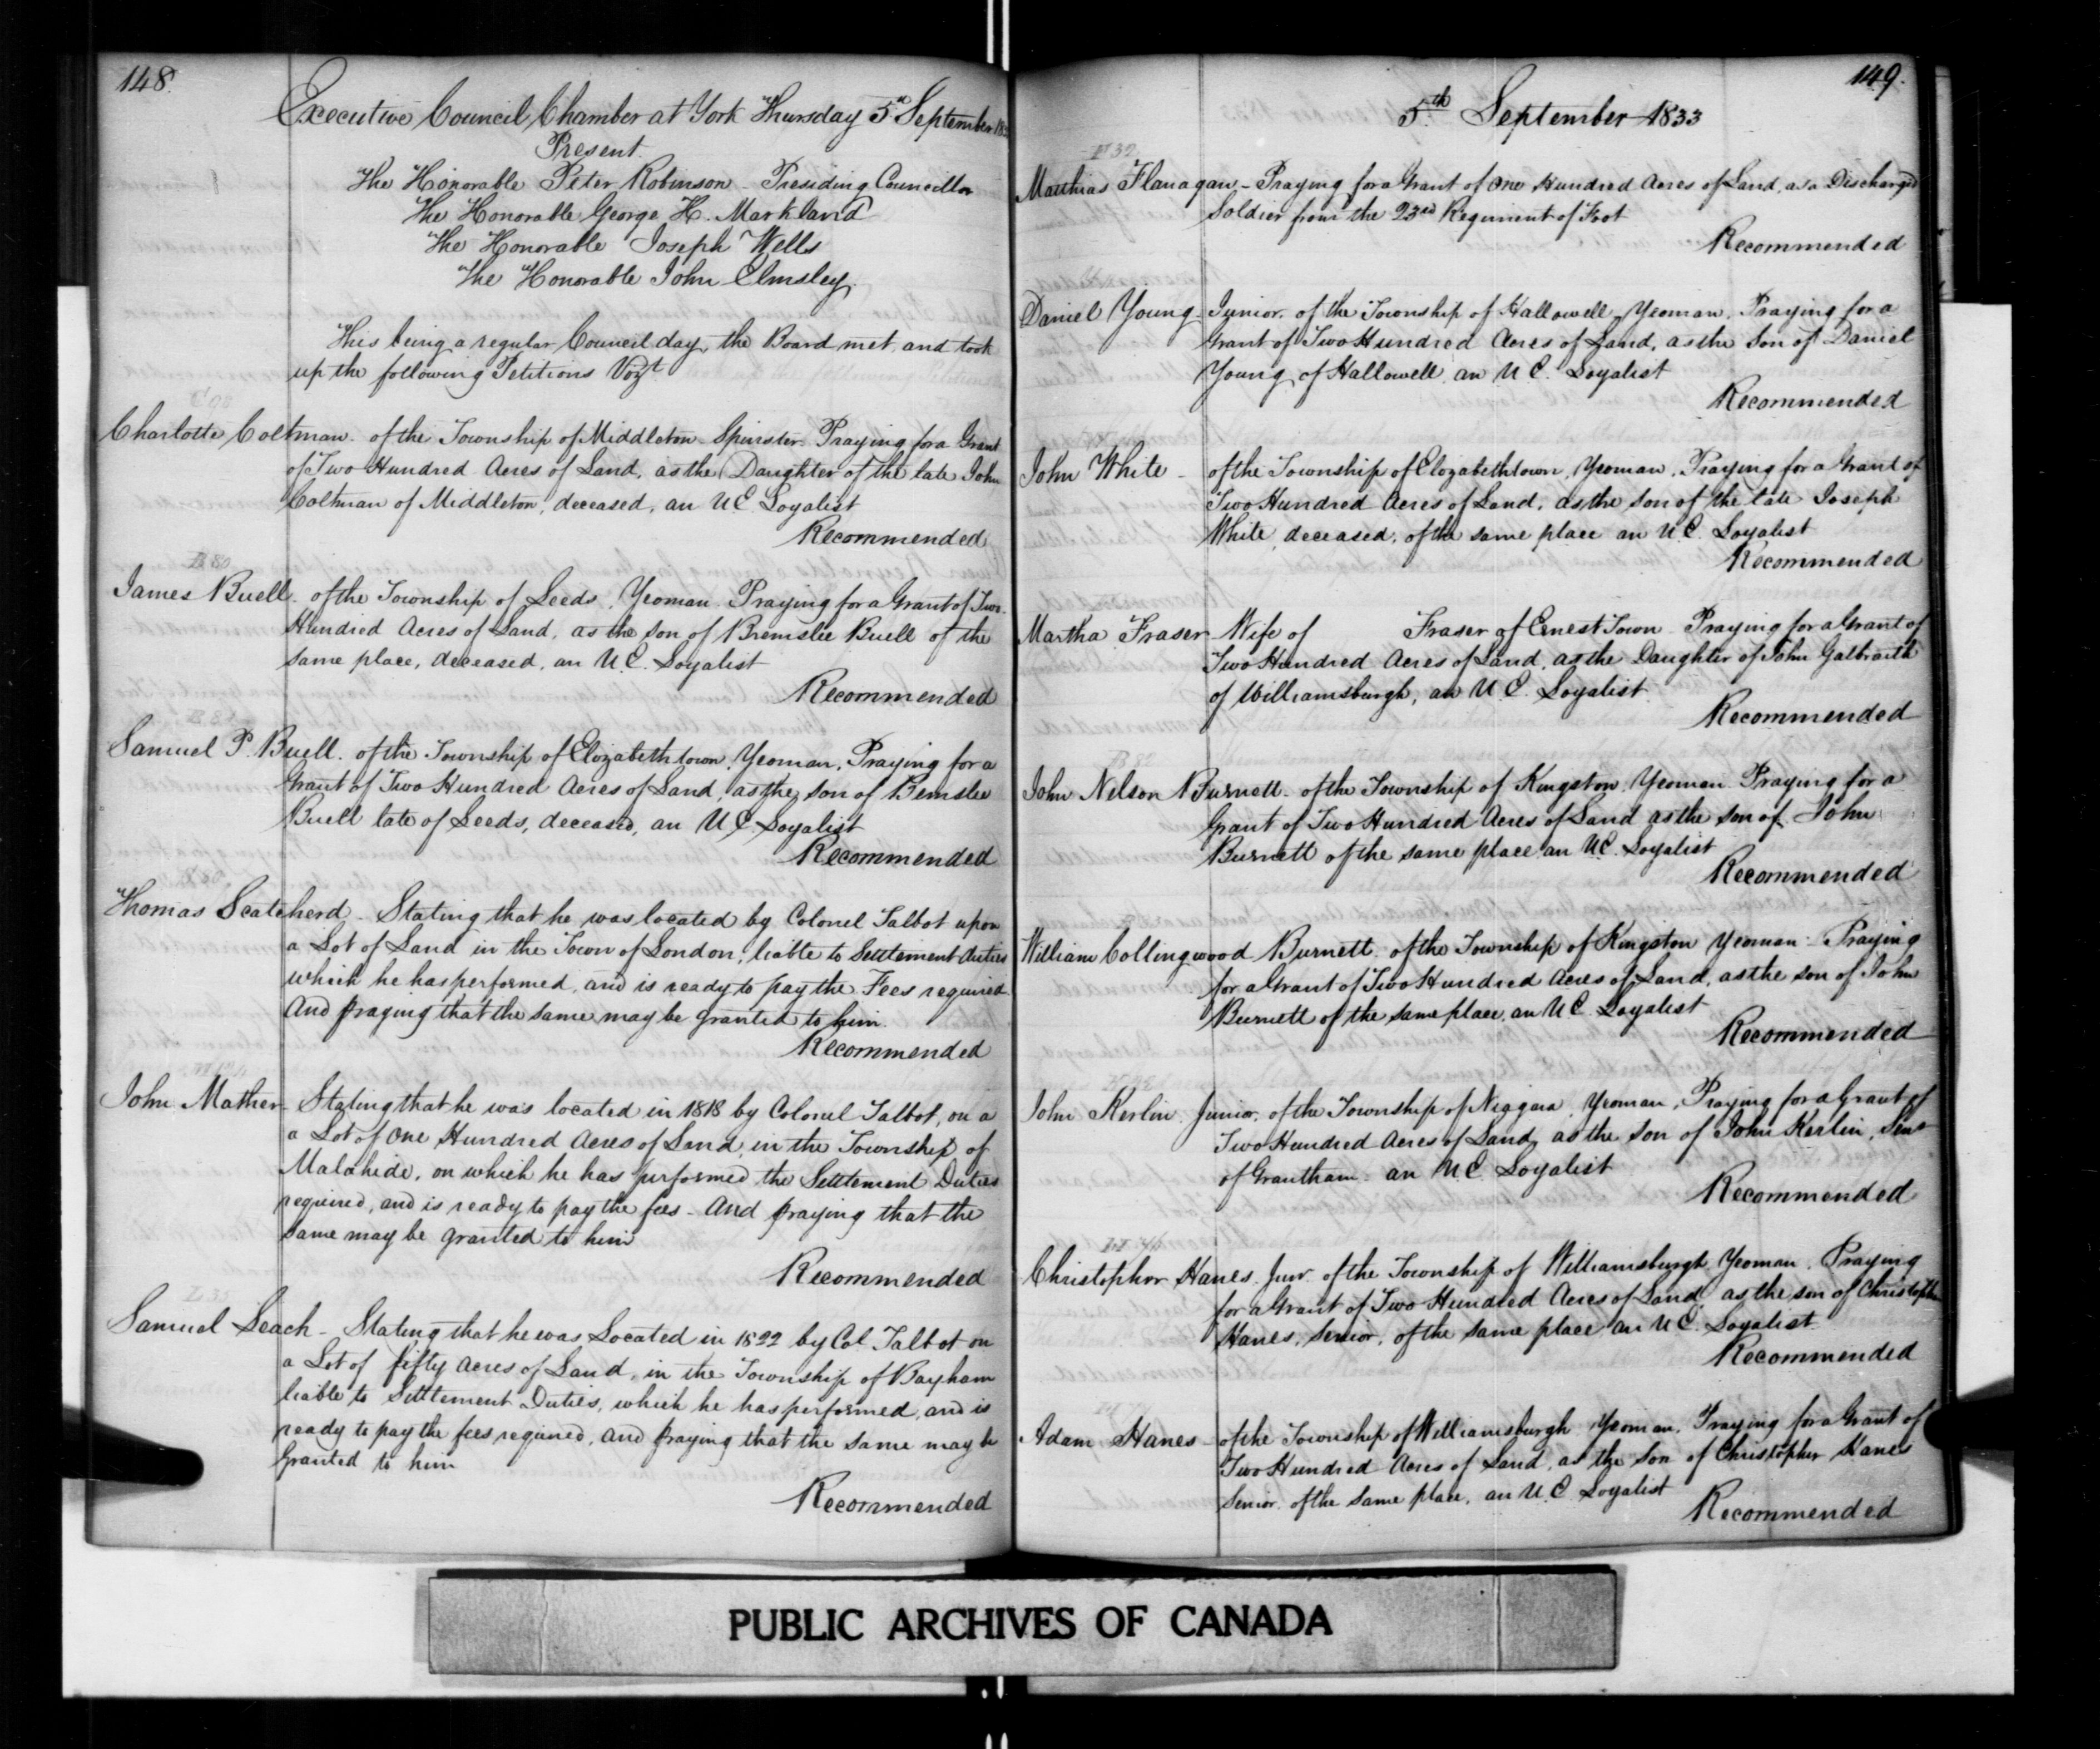 148.
Executive Council Chamber at York Thursday 5th September
Present
The Honorable Peter Robinson - Presiding Councillor
The Honorable George H. Markland
The Honorable Joseph Wells
The Honorable John Elmsley.
This being a regular Council day, the Board met, and took
up the following Petitions Vizt
Charlotte Coltman. of the Township of Middleton Spinster Praying for a Grant
of Two Hundred Acres of Land, as the Daughter of the late John
Coltman of Middleton, deceased, an U E Loyalist
Recommended
B 80
James Buell. of the Township of Leeds, Yeoman Praying for a Grant of Two
Hundred Acres of Land, as the son of Bremslee Buell of the
same place, deceased, an U.E. Loyalist
Recommended
Samuel P. Buell. of the Township of Elizabethtown, Yeoman, Praying for a
Grant of Two Hundred Acres of Land, as the son of Bemslee
Buell late of Leeds, deceased, an U E Loyalist
Recommended
Thomas Scatcherd - Stating that he was located by Colonel Talbot upon
a Lot of Land in the Town of London, liable to Settlement duties
which he has performed, and is ready to pay the Fees required
And praying that the same may be granted to him.
Recommended
John Mather - Stating that he was located in 1818 by Colonel Talbot, on a
a Lot of One Hundred Acres of Land, in the Township of
Malahide, on which he has performed the Settlement Duties
required, and is ready to pay the fees - And praying that the
same may be granted to him
Recommended
Samuel Leach - Stating that he was Located in 1822 by Col. Talbot on
a Lot of fifty Acres of Land, in the Township of Bayham
liable to Settlement Duties, which he has performed, and is
ready to pay the fees required, and praying that the same may be
Granted to him
Recommended
149.
5th September 1833
Matthias Flanagan - Praying for a Grant of One Hundred Acres of Land, as a Discharged
Soldier from the 23rd Regiment of Foot
Recommended
Daniel Young - Junior, of the Township of Hallowell, Yeoman, Praying for a
Grant of Two Hundred Acres of Land, as the Son of Daniel
Young of Hallowell, an U E. Loyalist
Recommended
John White - of the Township of Elizabethtown, Yeoman, Praying for a Grant of
Two Hundred Acres of Land, as the son of the late Joseph
White, deceased, of the same place an U E. Loyalist
Recommended
Martha Fraser - Wife of Fraser of Ernest Town - Praying for a Grant of
Two Hundred Acres of Land, as the Daughter of John Galbraith
of Williamsburgh, an U. E. Loyalist
Recommended
John Nelson Burnett - of the Township of Kingston, Yeoman Praying for a
Grant of Two Hundred Acres of Land as the son of John
Burnett of the same place an U.E. Loyalist
Recommended
William Collingwood Burnett. of the Township of Kingston Yeoman - Praying
for a Grant of Two Hundred Acres of Land, as the son of John
Burnett of the same place, an U E. Loyalist
Recommended
John Kerlin Junior, of the Township of Niagara, Yeoman, Praying for a Grant of
Two Hundred Acres of Land, as the son of John Kerlin, Senr
of Grantham - an U E. Loyalist
Recommended
Christopher Hanes. Junr. of the Township of Williamsburgh, Yeoman, Praying
for a Grant of Two Hundred Acres of Land, as the son of Christopher
Hanes, Senior, of the same place an U E. Loyalist
Recommended
Adam Hanes - of the Township of Williamsburgh Yeoman, Praying for a Grant of
Two Hundred Acres of Land, as the son of Christopher Hanes
Senior of the same place, an U. E Loyalist
Recommended
PUBLIC ARCHIVES OF CANADA